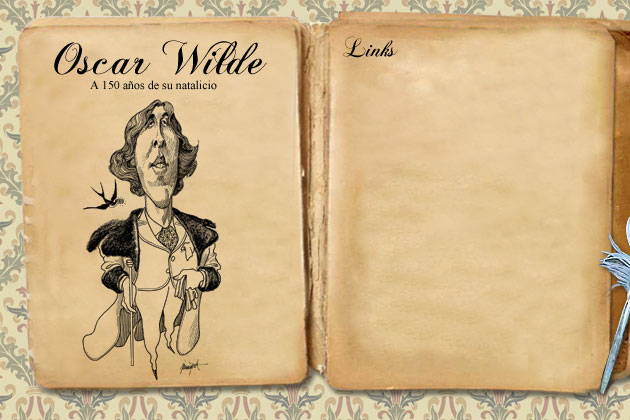 Oscar Wilde
A 150 años de su natalicio
Links